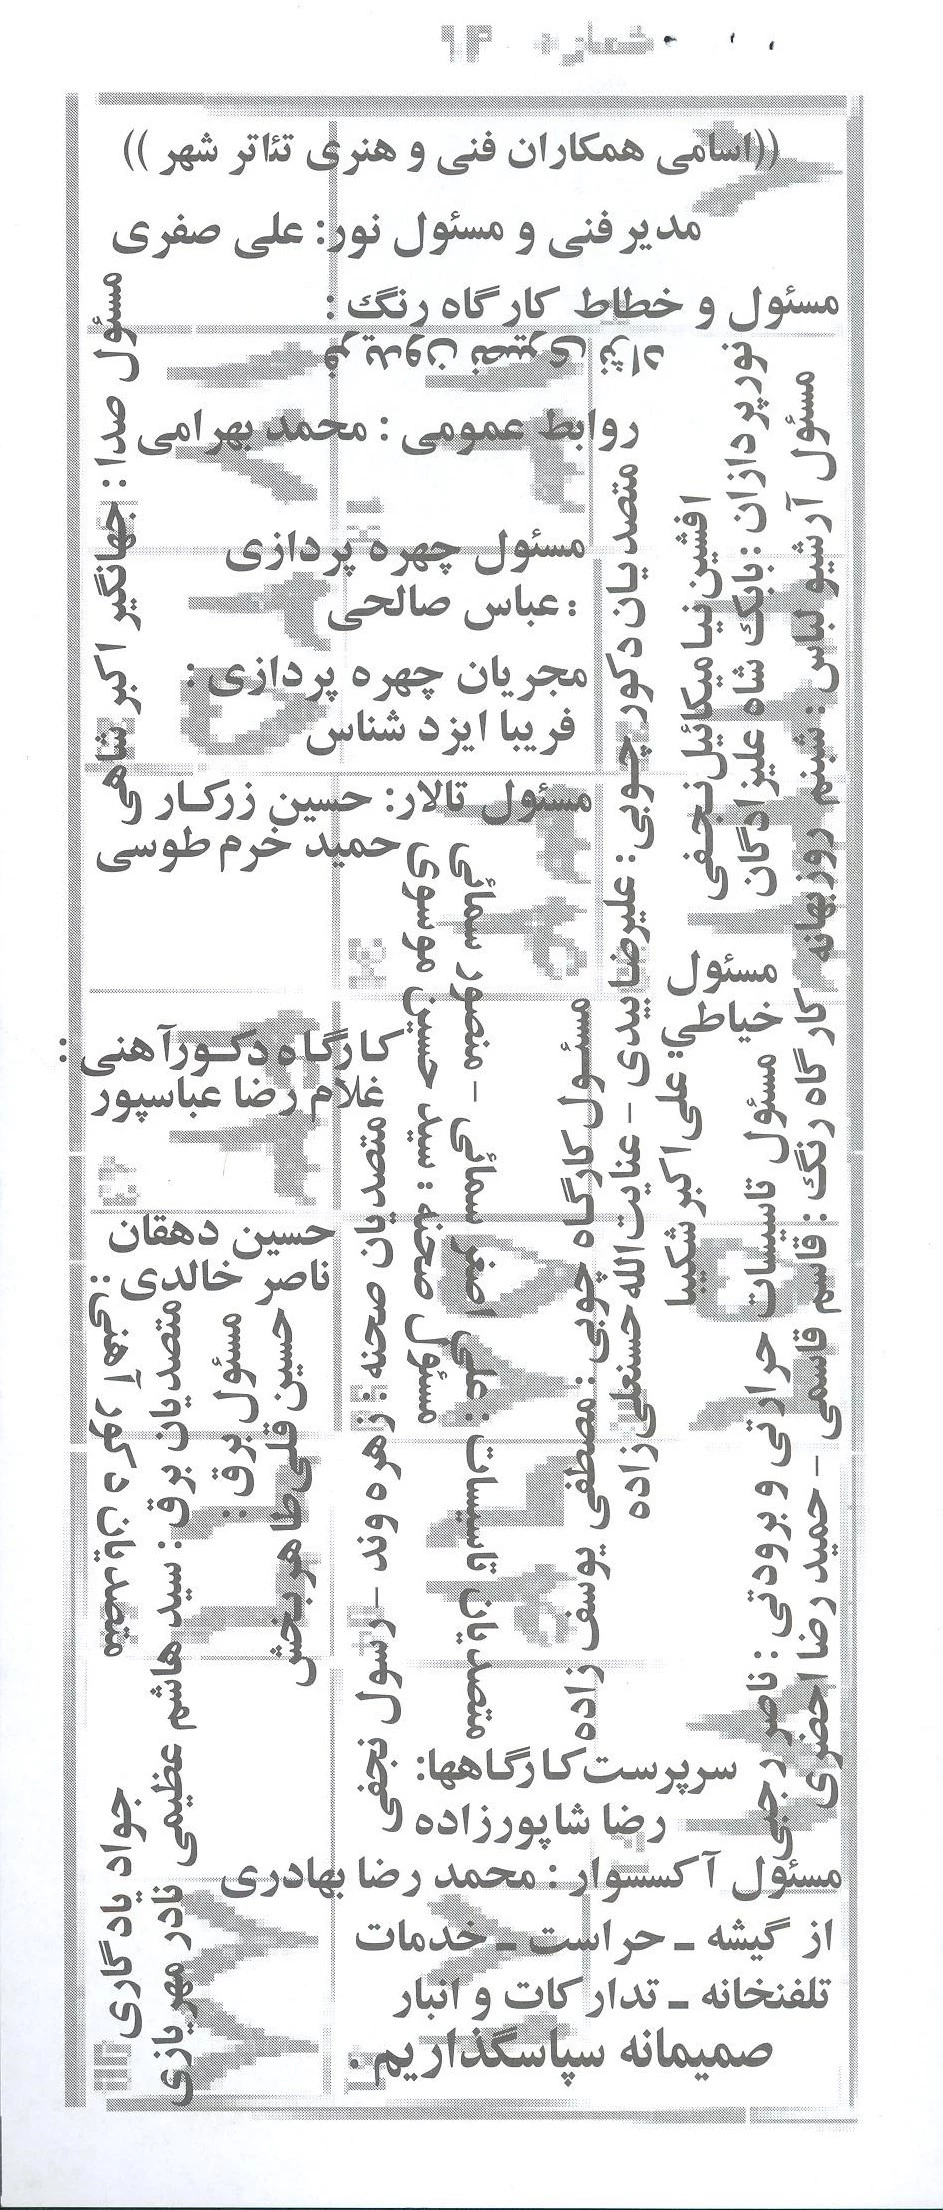 شماره ۱۴
((اسامی همکاران فنی و هنری تئاتر شهر ))
مدیر فنی و مسئول نور: علی صفری
مسئول و خطاط کارگاه رنگ :
فریدون نصیری نژاد
روابط عمومی : محمد بهرامی
مسئول صدا : جهانگیر اکبر شاهی
نورپردازان : بابک شاه علیزادگان
افشین نیا میکائیل نجفی
مسئول آرشیو لباس : شبنم روزبهانه
مسئول چهره پردازی
: عباس صالحی
مجریان چهره پردازی :
فریبا ایزد شناس
متصدیان دکور چوبی : علیرضا بیدی - عنایت الله حسنعلی زاده
مسئول تالار: حسین زرکار ی
حمید خرم طوسی
مسئول
خیاطی: علی اکبر شکیبا
مسئول صحنه : سید حسین موسوی
متصدیان تاسیسات : علی اصغر سمائی - منصور سمائی
مسئول کارگاه چوبی : مصطفی یوسف زاده
مسئول تاسیسات حرارتی و برودتی : ناصر رجبی
کارگاه رنگ : قاسم قاسمی - حمید رضا احضری
کارگاه دکورآهنی :
غلام رضا عباسپور
متصدیان صحنه : زهره وند - رسول نجفی
متصدیان دکور آهنی :
حسین دهقان
ناصر خالدی
مسئول برق :
حسین قلی طاهربخش
متصدیان برق : سید هاشم عظیمی نادر مهریازی
جواد یادگاری
سرپرست کارگاهها:
رضا شاپورزاده
مسئول آکسسوار : محمد رضا بهادری
از گیشه ـ حراست ـ خدمات
تلفنخانه ـ تدارکات و انبار
صمیمانه سپاسگذاریم .